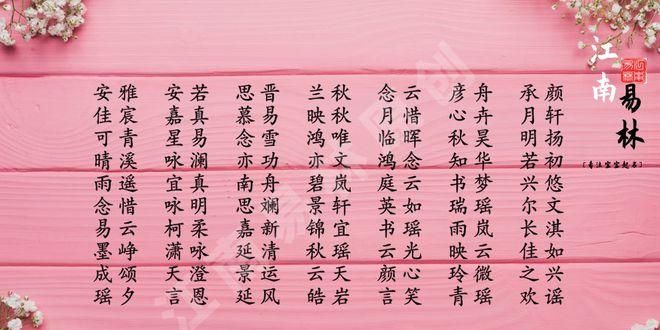 安雅 安若 思晋 兰秋 念云 彦舟 承颜
佳宸 嘉真 慕易 映秋 月惜 心卉 月轩
可青 星易 念雪 鸿唯 临晖 秋昊 明扬
晴溪 咏澜 亦功 亦文 鸿念 知华 若初
雨遥 宜真 南舟 碧岚 庭云 书梦 兴悠
念惜 咏明 思斓 景轩 英如 瑞瑶 尔文
易云 柯柔 嘉新 锦宜 书瑶 雨岚 长淇
墨峥 潇咏 延清 秋瑶 云光 映云 佳如
成颂 天澄 景运 云天 颜心 玲微 之兴
瑶夕 言恩 延风 皓岩 言笑 青瑶 欢谣
江南
易林
[专注宝宝起名]
江南易林原创